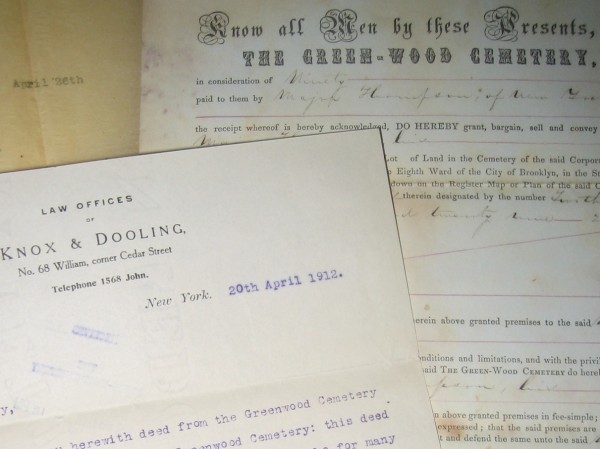 April 26th
Know all Men by these Presents,
THE GREEN-WOOD CEMETERY,
in consideration of Ninety
paid to them by Major Thompson, of
the receipt whereof is hereby acknowledged, DO HEREBY grant, bargain, sell and convey
Lot of Land in the Cemetery of the said Corpor
Eighth Ward of the City of Brooklyn, in the St
down on the Register Map or Plan of the said C
therein designated by the number
d twenty nine
herein above granted premises to the said
onditions and limitations, and with the privil
said THE GREEN-WOOD CEMETERY do hereb
n above granted premises in fee-simple;
expressed; that the said premises are
t and defend the same unto the said
LAW OFFICES
OF
KNOX & DOOLING,
No. 68 William, corner Cedar Street
Telephone 1568 John.
New York. 20th April 1912.
y,
herewith deed from the Greenwood Cemetery
enwood Cemetery: this deed
for many